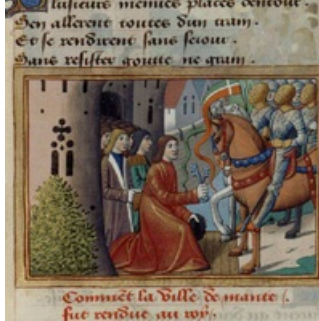 Plusieurs menues places dentour.
Sen allerent toutes dun train.
Et se rendirent sans seiour.
Sans resister goutte ne grain.
Comment la ville de mante
fut rendue au roy